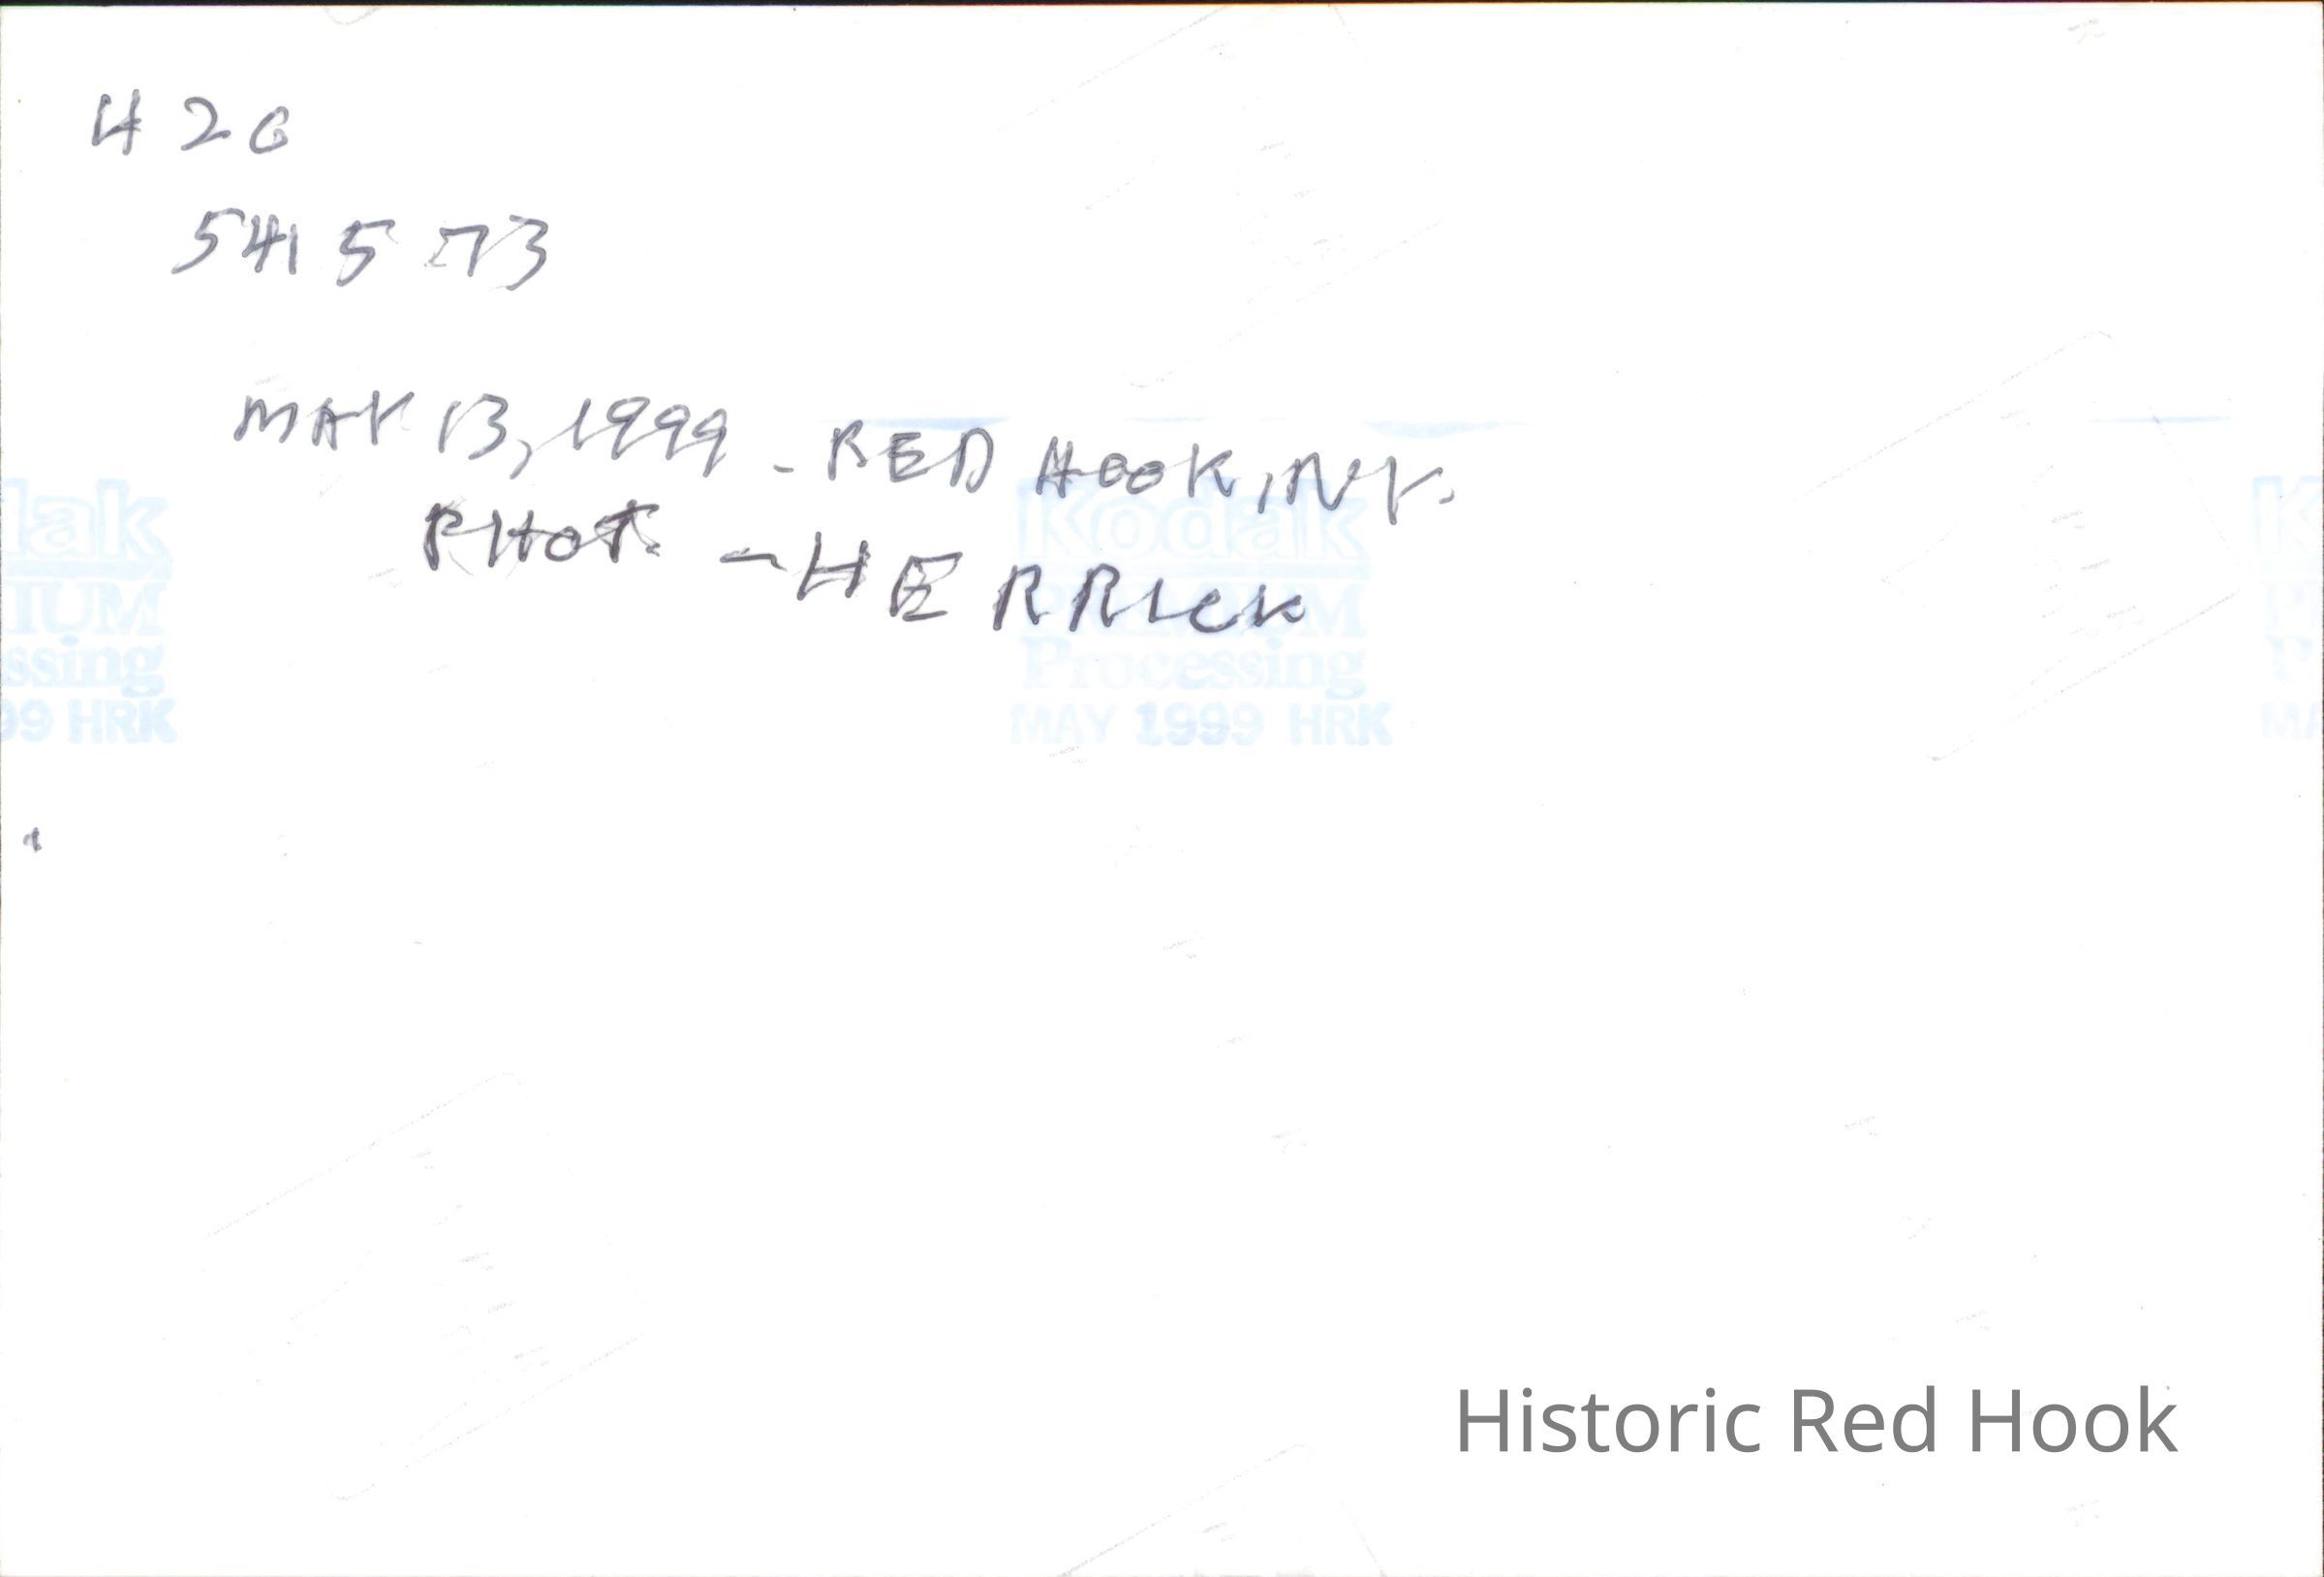 420
541573
MAY 13, 1999 - RED HOOK, NY.
PHOT. - HERRICK
Kodak
PREMIUM
Processing
MAY 1999 HRK
lak
IUM
ssing
99 HRK
K
P
P
MA
Historic Red Hook